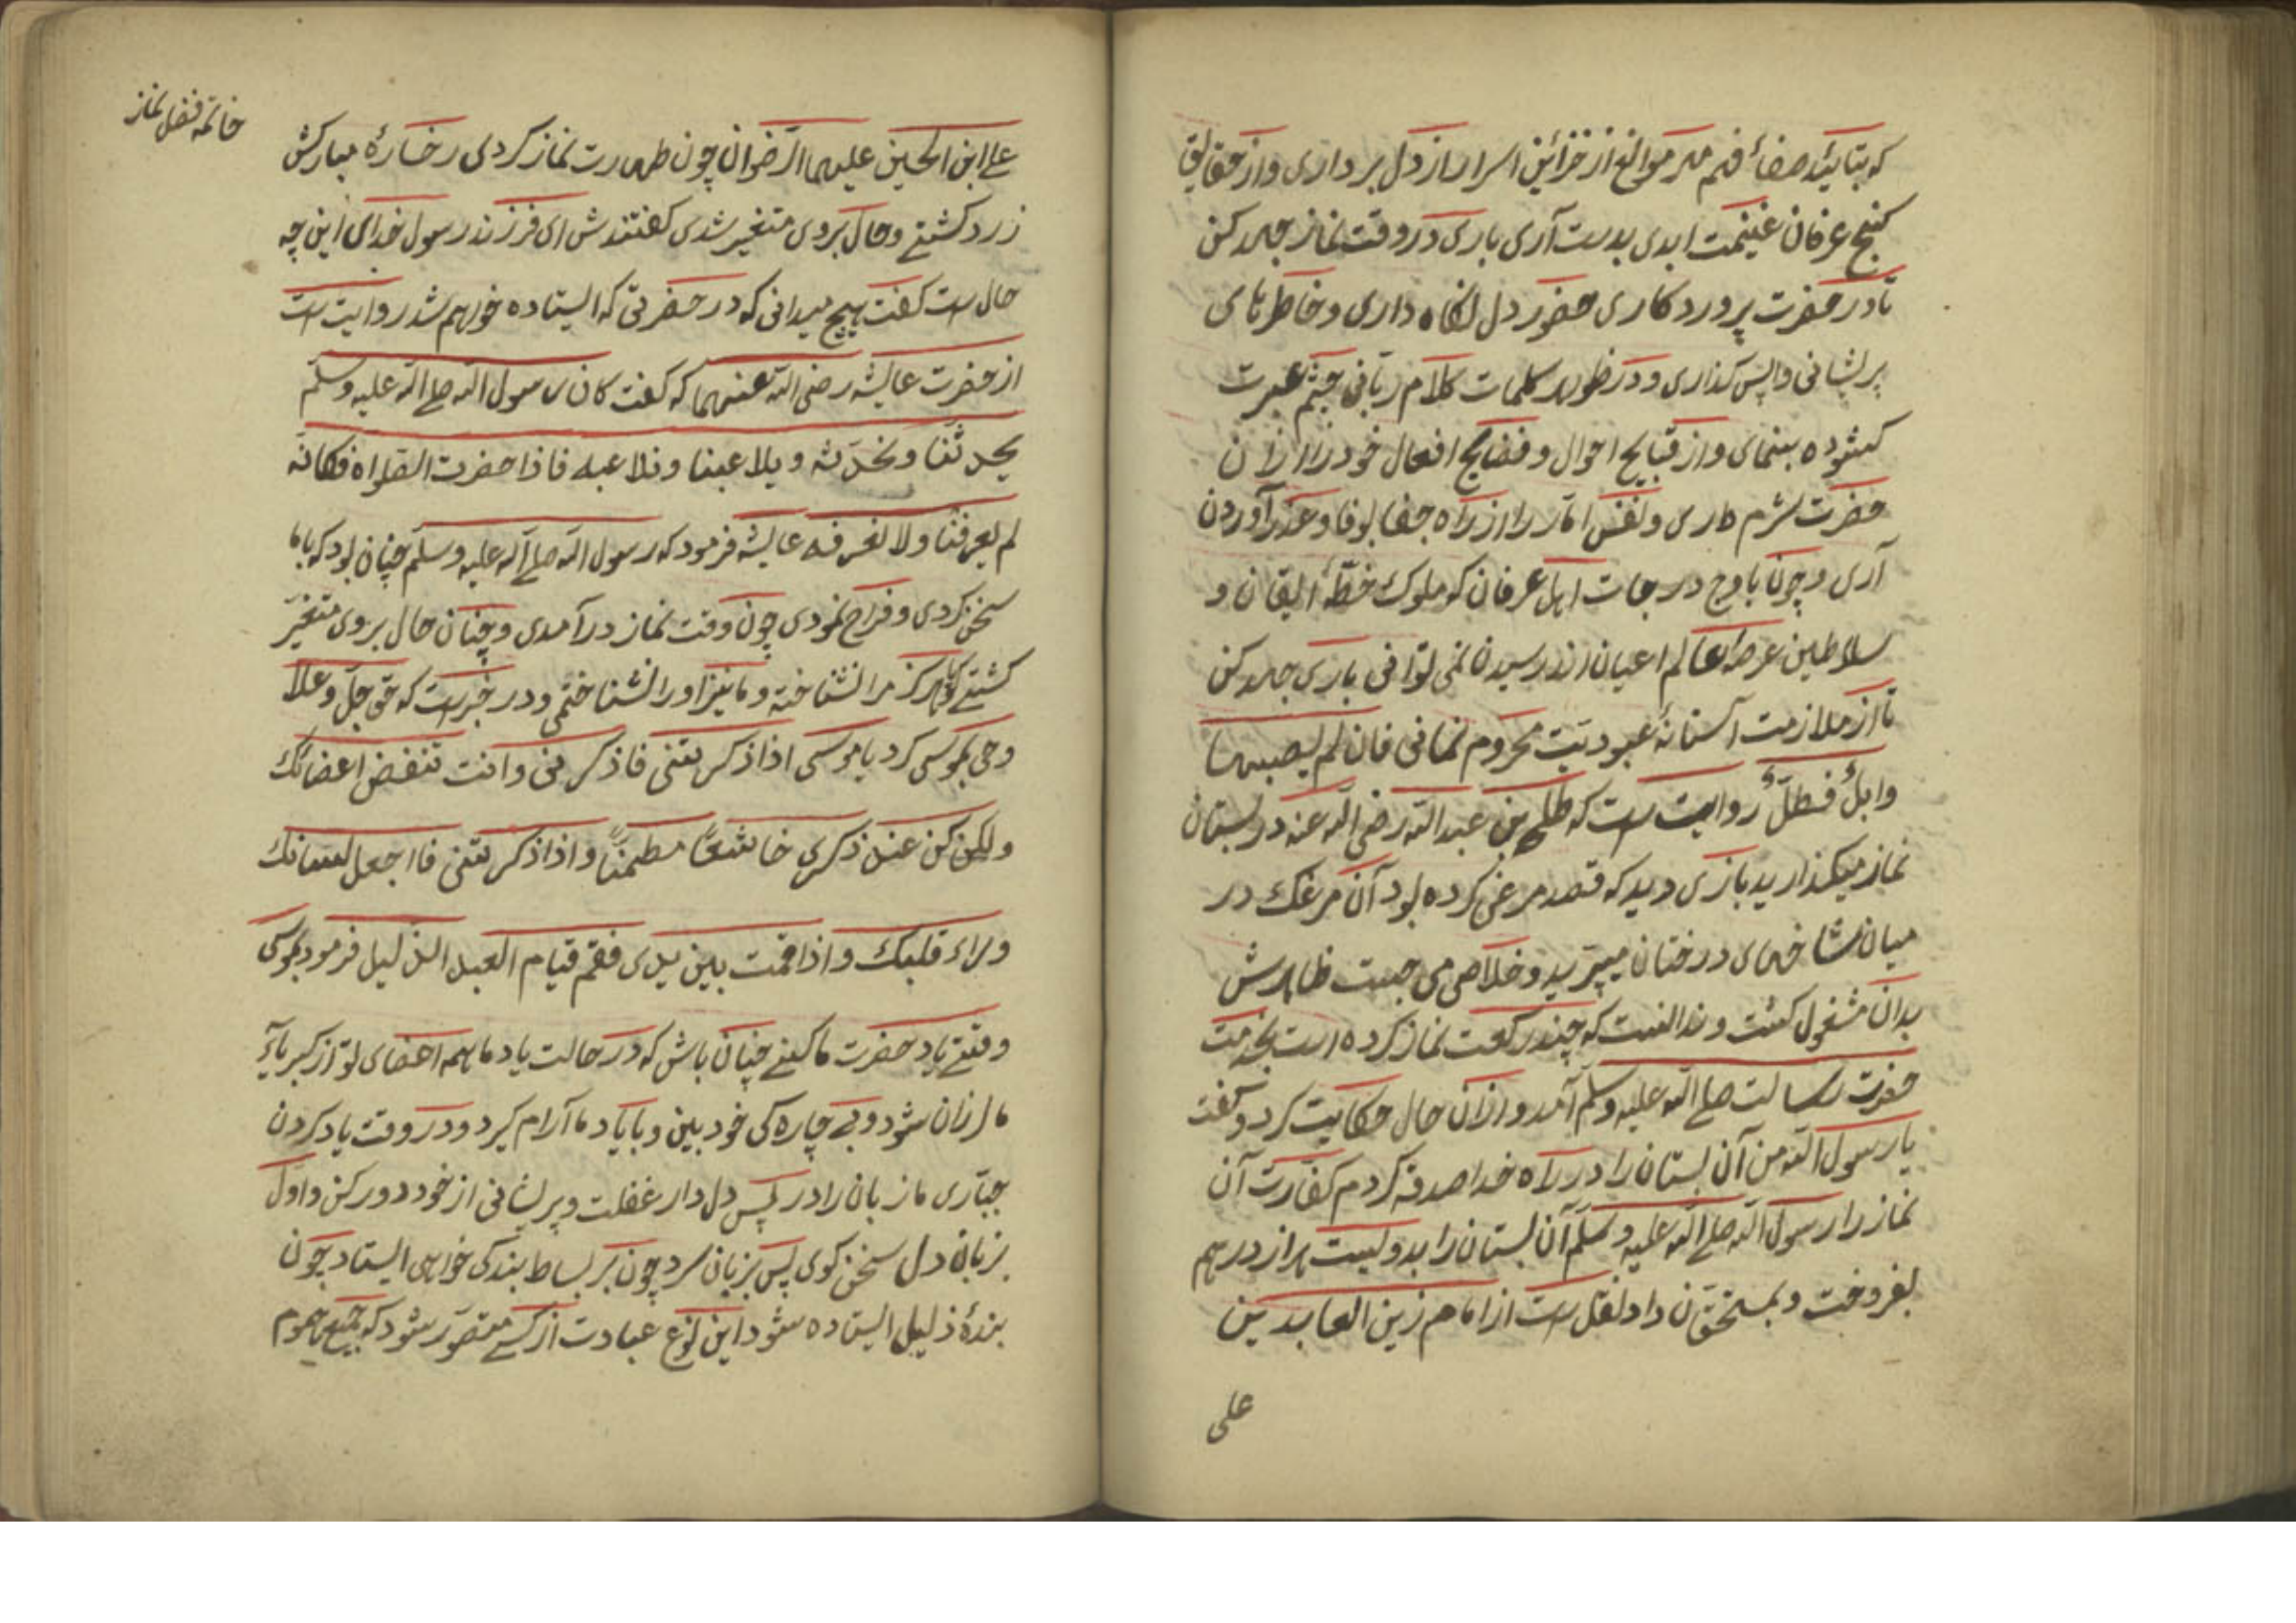 که بتائید صفاء فهم مهر موانع از خزائن اسرار از دل برداری و از حقایق
کنج عرفان غنیمت ابدی بدست آری باری در وقت نماز جهد کن
تا در حضرت پروردکاری حضور دل نکاه داری و خاطرهای
پریشانی واپس کذاری و در ظهور کلمات کلام ربانی چشم عبرت
کشوده بنمای و از قبایح احوال و فضایح افعال خود را از ان
حضرت شرم داری و نفس اماره را از راه جفا بوفا و عذر آوردن
آری و چون باوج درجات اهل عرفان که ملوک خطهٔ ایقان و
سلاطین عرصهٔ عالم اعیان اند رسیدن نمی توانی باری جهد کن
تا از ملازمت آستانهٔ عبودیت محروم نمانی فان لم یصبها
وابلٌ فطلٌّ روایت ست که طلحه بن عبدالله رضی الله عنه در بستان
نماز میکذارید بازی دید که قصد مرغی کرده بود آن مرغک در
میان شاخهای درختان میپرید و خلاصی می جست ظاهرش
بدان مشغول کشت و ندانست که چند رکعت نماز کرده است بخدمت
حضرت رسالت صلے الله علیه وسلم آمد و ازان حال حکایت کرد و کفت
یا رسول الله من آن بستان را در راه خدا صدقه کردم کفّارت آن
نماز را رسول الله صلے الله علیه وسلم آن بستان را بدویست هزار درهم
بفروخت و بمستحقّان داد نقل ست از امام زین العابدین
علی
خاتمه فضل نماز
علے ابن الحسین علیهما الرضوان چون طهارت نماز کردی رخسارهٔ مبارکش
زرد کشتے و حال بروی متغیر شدی کفتندش ای فرزند رسول خدای این چه
حال ست کفت هیچ میدانی که در حضرتی که ایستاده خواهم شد روایت ست
از حضرت عایشه رضی الله عنهما که کفت کان رسول الله صلے الله علیه وسلم
یحدثنا و نحدّثه و یلاعبنا و نلاعبه فاذا حضرت الصلواة فکانه
لم یعرفنا ولا نعرفه عایشه فرمود که رسول الله صلے الله علیه وسلم چنان بود که باما
سخن کردی و مزاح نمودی چون وقت نماز در آمدی و چنان حال بروی متغیر
کشتے کویا هرکز مرا نشناخته و ما نیز او را نشناختمی و در خبرست که حق جلّ وعلا
وحی بموسی کرد یا موسی اذا ذکرتنی فاذکرنی و انت تنفض اعضائک
ولکن کن عند ذکری خاشعاً مطمئنّاً و اذا ذکرتنی فااجعل لسانک
وراء قلبک و اذا قمت بین یدی فقم قیام العبد الذلیل فرمود بموسی
وقتے یاد حضرت ما کنے چنان باش که در حالت یاد ما همه اعضای تو از کبریآء
ما لرزان شود و بے چاره کی خود بین و بایاد ما آرام کیرد و در وقت یاد کردن
جبّاری ما زبان را در پس دل دار غفلت و پریشانی از خود دور کن و اوّل
بزبان دل سخن کوی پس بزبان سر چون بر بساط بندکی خواهی ایستاد چون
بندهٔ ذلیل ایستاده شود این نوع عبادت از کسے متصوّر شود که جمیع هموم